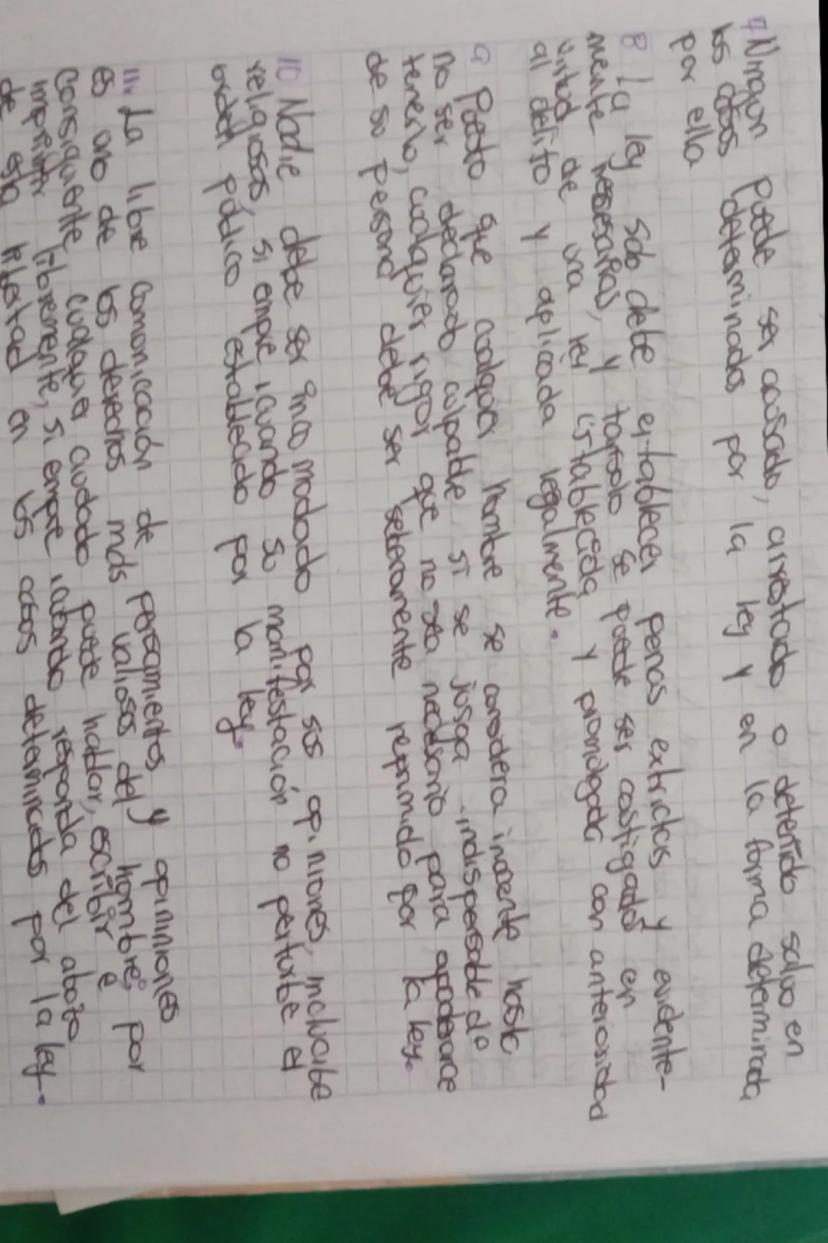 7 Ningun puede ser acusado, arrestado o detenido salvo en
los casos determinados por la ley y en la forma determinada
por ella
8 La ley solo debe establecer penas extrictas y evidente-
mente necesarias, y tansolo se puede ser castigado en
virtud de una ley establecida y promolgada con anterioridad
al delito y aplicada legalmente.
9 Puesto que cualquier hombre se considera inocente hasta
no ser declarado culpable si se jusga indispensable de
tenerlo, cualquier rigor que no sea necesario para apoderarce
de su persona debe ser seteramente reprimido por la ley.
10 Nadie debe ser incomodado por sus opiniones, incluoibe
religiosas, si empre, cuando su manifestación no perturbe el
orden público establecido por la ley.
11. La libre comunicación de pensamientos y opininiones
es uno de los derechos mas valiosos del hombre: por
consiguiente cualquier ciudado puede hablar, escribir e
imprimir libremente, si empre cuando responda del abuzo
de esta libertad en los casos determinados por la ley.